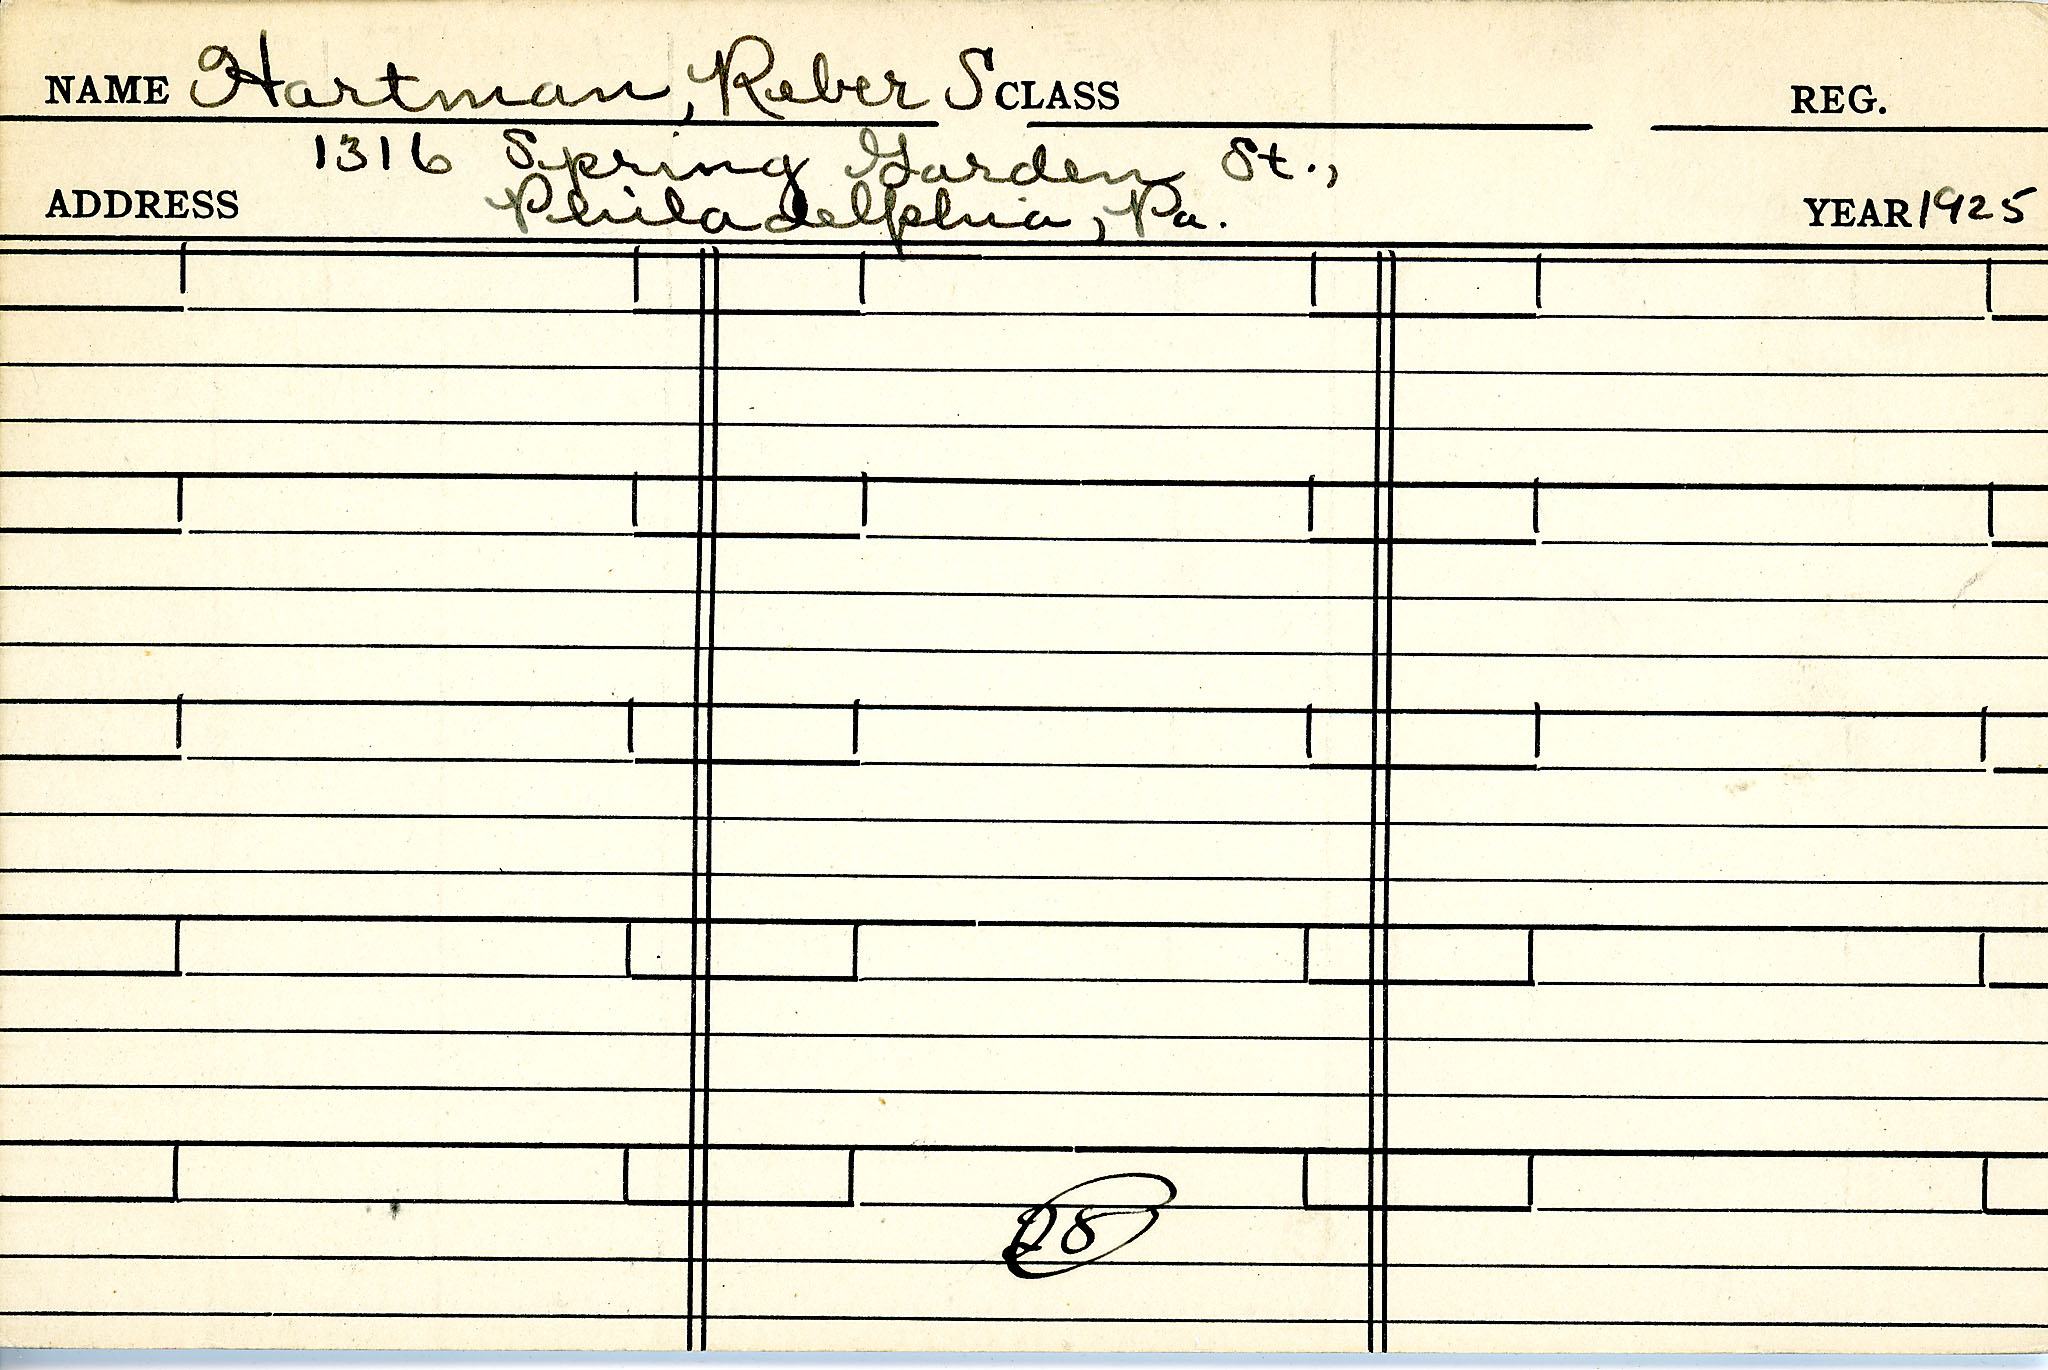 NAME Hartman, Reber S CLASS REG.
1316 Spring Garden St.,
ADDRESS Philadelphia, Pa. YEAR 1925
28